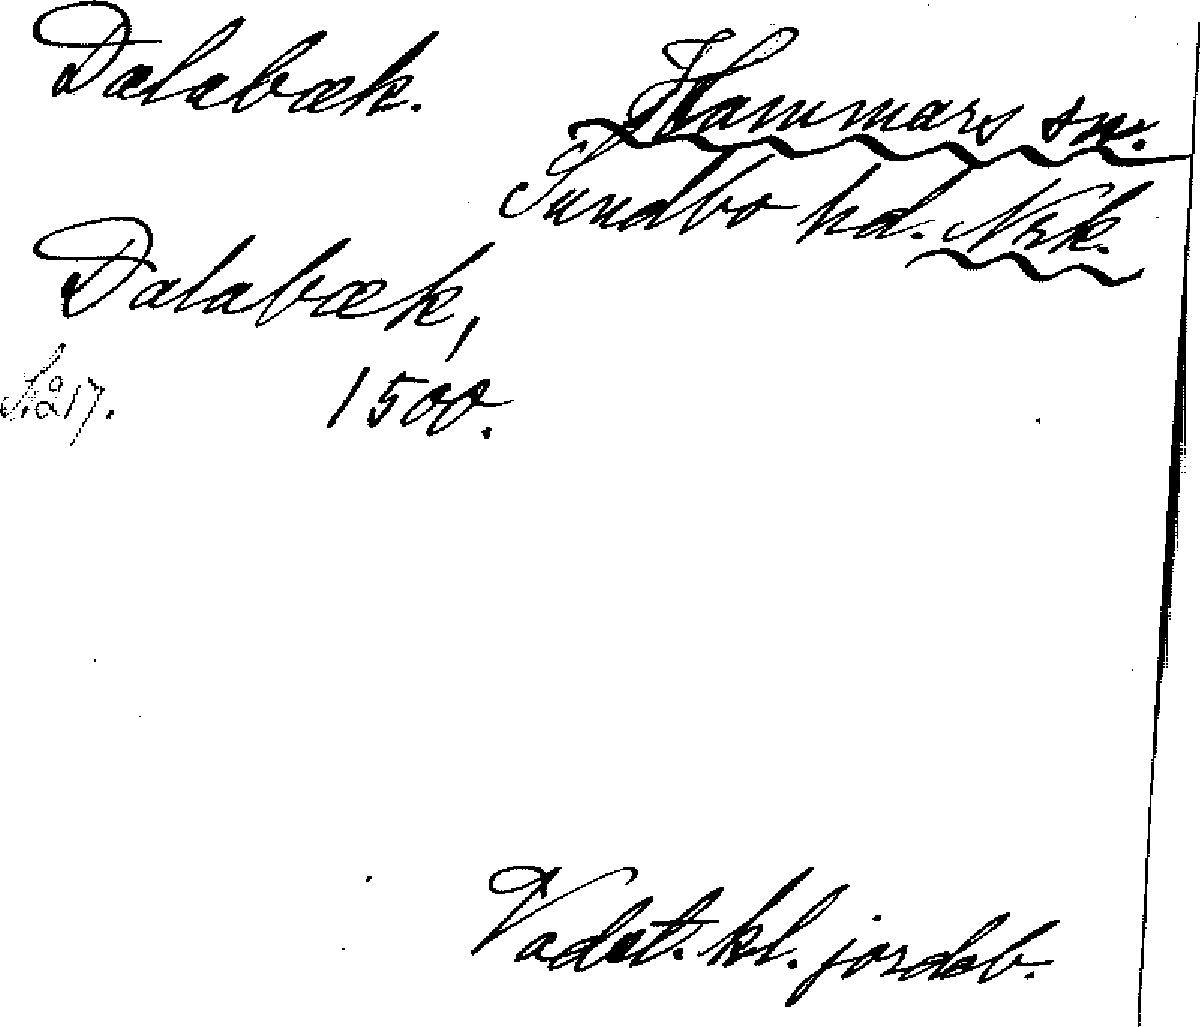 Dalabæk.
Hammars sn.
Sundbo hd. Nrk.
Dalabæk,
1500.
S. 217.
Vadst. kl. jordeb.